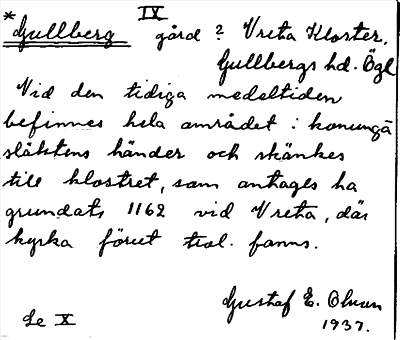 IV
*Gullberg gård? Vreta Kloster,
Gullbergs hd. Ögl
Vid den tidiga medeltiden
befinnes hela området i konunga
släktens händer och skänkes
till klostret, som antages ha
grundats 1162 vid Vreta, där
kyrka förut trol. fanns.
Gustaf E. Olsson
1937.
Se X